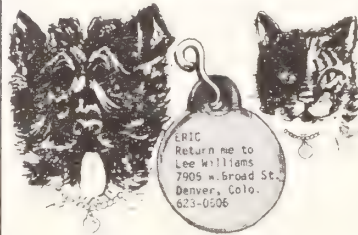 ERIC
Return me to
Lee Williams
7905 w.Broad St.
Denver, Colo.
623-0606